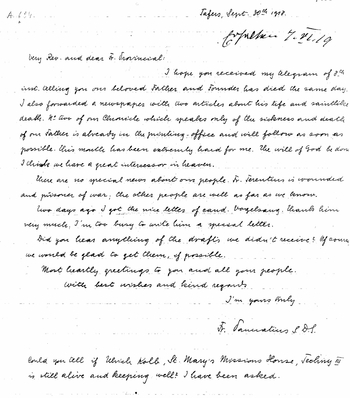 Tafers, Sept. 30th 1918.
Erhalten 7. VI. 19
Very Rev. and dear Fr. Provincial:
I hope you received my telegram of 8th
inst. telling you our beloved Father and Founder has died the same day.
I also forwarded a newspaper with two articles about his life and saintlike
death. Nr. two of our Chronicle which speaks only of the sickness and death
of our Father is already in the printing-office and will follow as soon as
possible. This month has been extremely hard for me. The will of God be done
I think we have a great intercessor in heaven.
There are no special news about our people. Fr. Florentius is wounded
and prisoner of war; the other people are well as far as we know.
Two days ago I got the nice letter of cand. Vogelsang. Thanks him
very much. I'm too busy to write him a special letter.
Did you hear anything of the drafts we didn't receive? Of course
we would be glad to get them, if possible.
Most heartly greetings to you and all your people.
With best wishes and kind regards
I'm yours truly
Fr. Pancratius S.D.S.
Could you tell if Ulrich Kolb, St. Mary's Missions House, Techny Ill
is still alive and keeping well? I have been asked.